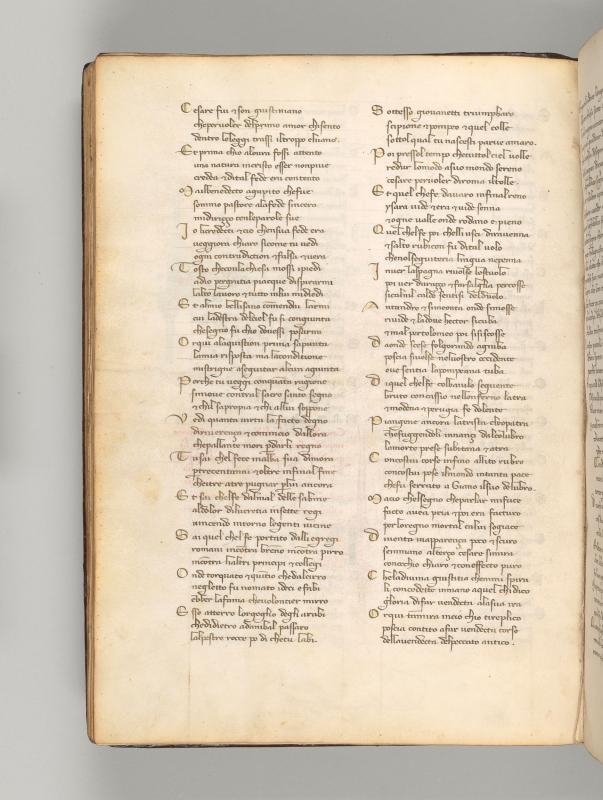 Cesare fui & son giustiniano
cheperuoler delprimo amor chisento
dentro leleggi trassi iltroppo eluano.
Et prima chio aloura fossi attento
una natura incristo esser nonpiue
credea & dital fede era contento
Malbenedecto agapito chefue
sommo pastore alafede sincera
midirizço conleparole sue
Io licredetti & cio chensua fede era
veggiora chiaro sicome tu vedi
ogni contradiction & falsa & uera
Tosto checonlachiesa mossi ipiedi
adio pergratia piacque dispirarmi
lalto lauoro & tutto inlui midiedi
Et almio bellisano comendai larmi
cui ladestra delciel fu si congiunta
chesegno fu chio douessi posarmi
Or qui alaquistion prima sapunta
lamia risposta ma laconditione
mistrigne aseguitar alcun agiunta
Perche tu ueggi conquata ragione
simoue contral sacro santo segno
& chil sapropia & chi allui sopone
Vedi quanta uirtu la facto degno
direuerença & comincio dallora
chepallante mori perdarli regno
Tu sai chel fece inalba sua dimora
pertrecentanni & oltre infinal fine
chetre atre pugnar plui ancora
Et sai chelfe dalmal delle sabine
aldolor delucretia insette regi
uincendo intorno legenti uicine
Sai quel chelfe portato dalli egregi
romani incotra breno incotra pirro
incotra lialtri principi & collegi
Onde torquato & quitio chedalcirro
negletto fu nomato ideci efabi
ebber lafama cheuolontier mirro
Esso atterro lorgoglio degli arabi
chedidietro adanibal passaro
lalpestre rocce po di chetu labi.
Sottesso giouanetti triumpharo
scipione & pompeo & quel colle
sottolqual tu nascesti parue amaro.
Poi pressol tempo chetuttol ciel volle
redur lomodo asuo mondo sereno
cesare peruoler diroma iltolle.
Et quel chefe dauaro infinalreno
ysara vide & era & vide senna
& ogne valle onde rodano e pieno
Quel chelfe poi chelli usci dirauenna
& salto rubicon fu dital uolo
chenolseguiteria lingua nepenna
Inuer laspagna riuolse lostuolo
poi uer duraçço & farsaglia percosse
sicalnil caldo sentisi delduolo
Antandro & simeonta onde simosse
riuide & ladoue hector sicuba
& mal pertolomeo poi siriscosse
Daonde scese folgorando agiuba
poscia siuolse neluostro occidente
oue sentia lapompeana tuba
Diquel chelfe colbaiulo seguente
bruto concassio nellonferno latra
& modena & perugia fe dolente
Piangene ancora latrista cleopatra
chefuggendoli innanzi dalcolubro
lamorte prese subitana & atra
Concostui corse infino allito rubro
concostui pose ilmondo intanta pace
chefu serrato a Giano ilsuo delubro.
Maco chelsegno cheparlar miface
facto auea pria & poi era facturo
perloregno mortal calui sogiace
Diuenta inapparença poco & scuro
seinmano alterço cesare simira
conocchio chiaro & conaffecto puro
Cheladiuina giustitia chemmi spira
li concedette inmano aquel chidico
gloria difar vendetta alasua ira
Or qui tamira incio chio tireplico
poscia contito afar uendetta corse
dellauendetta delpeccato antico.